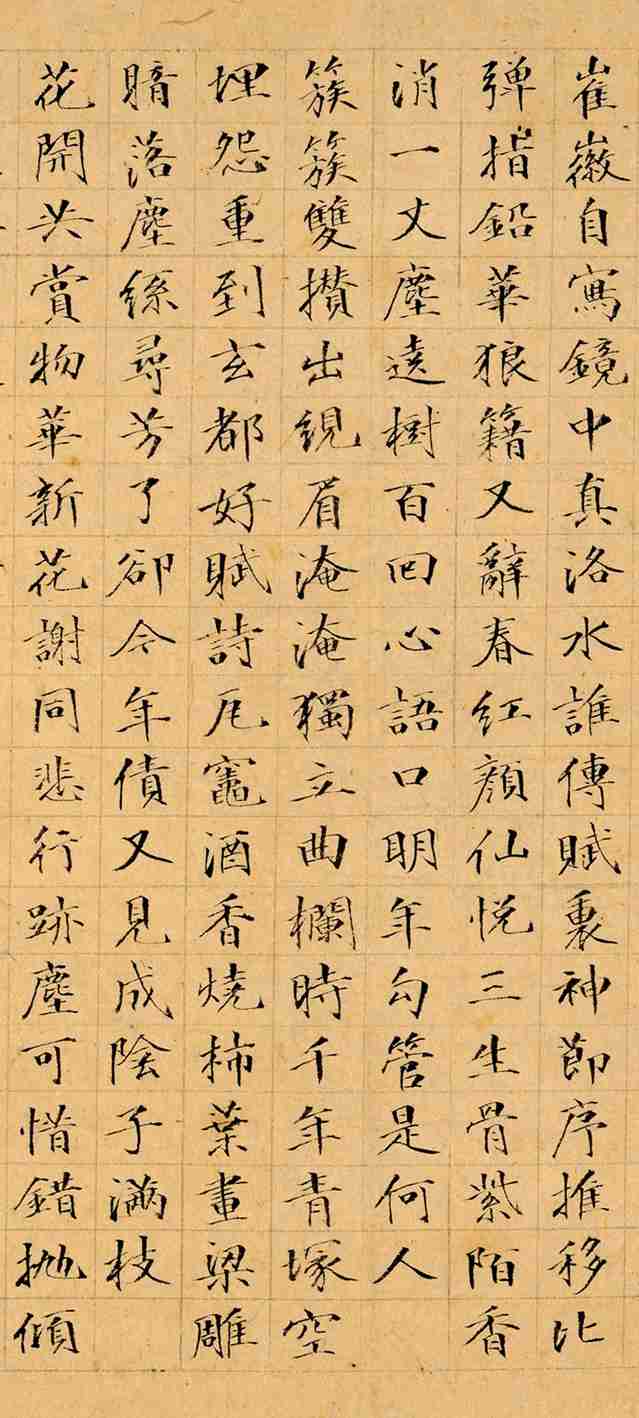 崔徽自寫鏡中真洛水誰傳賦裏神節序推移比
弹指鉛華狼籍又辭春紅顏仙悅三生骨紫陌香
消一丈塵遶樹百回心語口明年勾管是何人
簇簇雙攅出絸眉淹淹獨立曲欄時千年青塚空
埋怨重到玄都好賦詩瓦竈酒香燒柿葉畫梁雕
暗落塵絲尋芳了卻今年債又見成陰子滿枝
花開共賞物華新花謝同悲行跡塵可惜錯抛傾